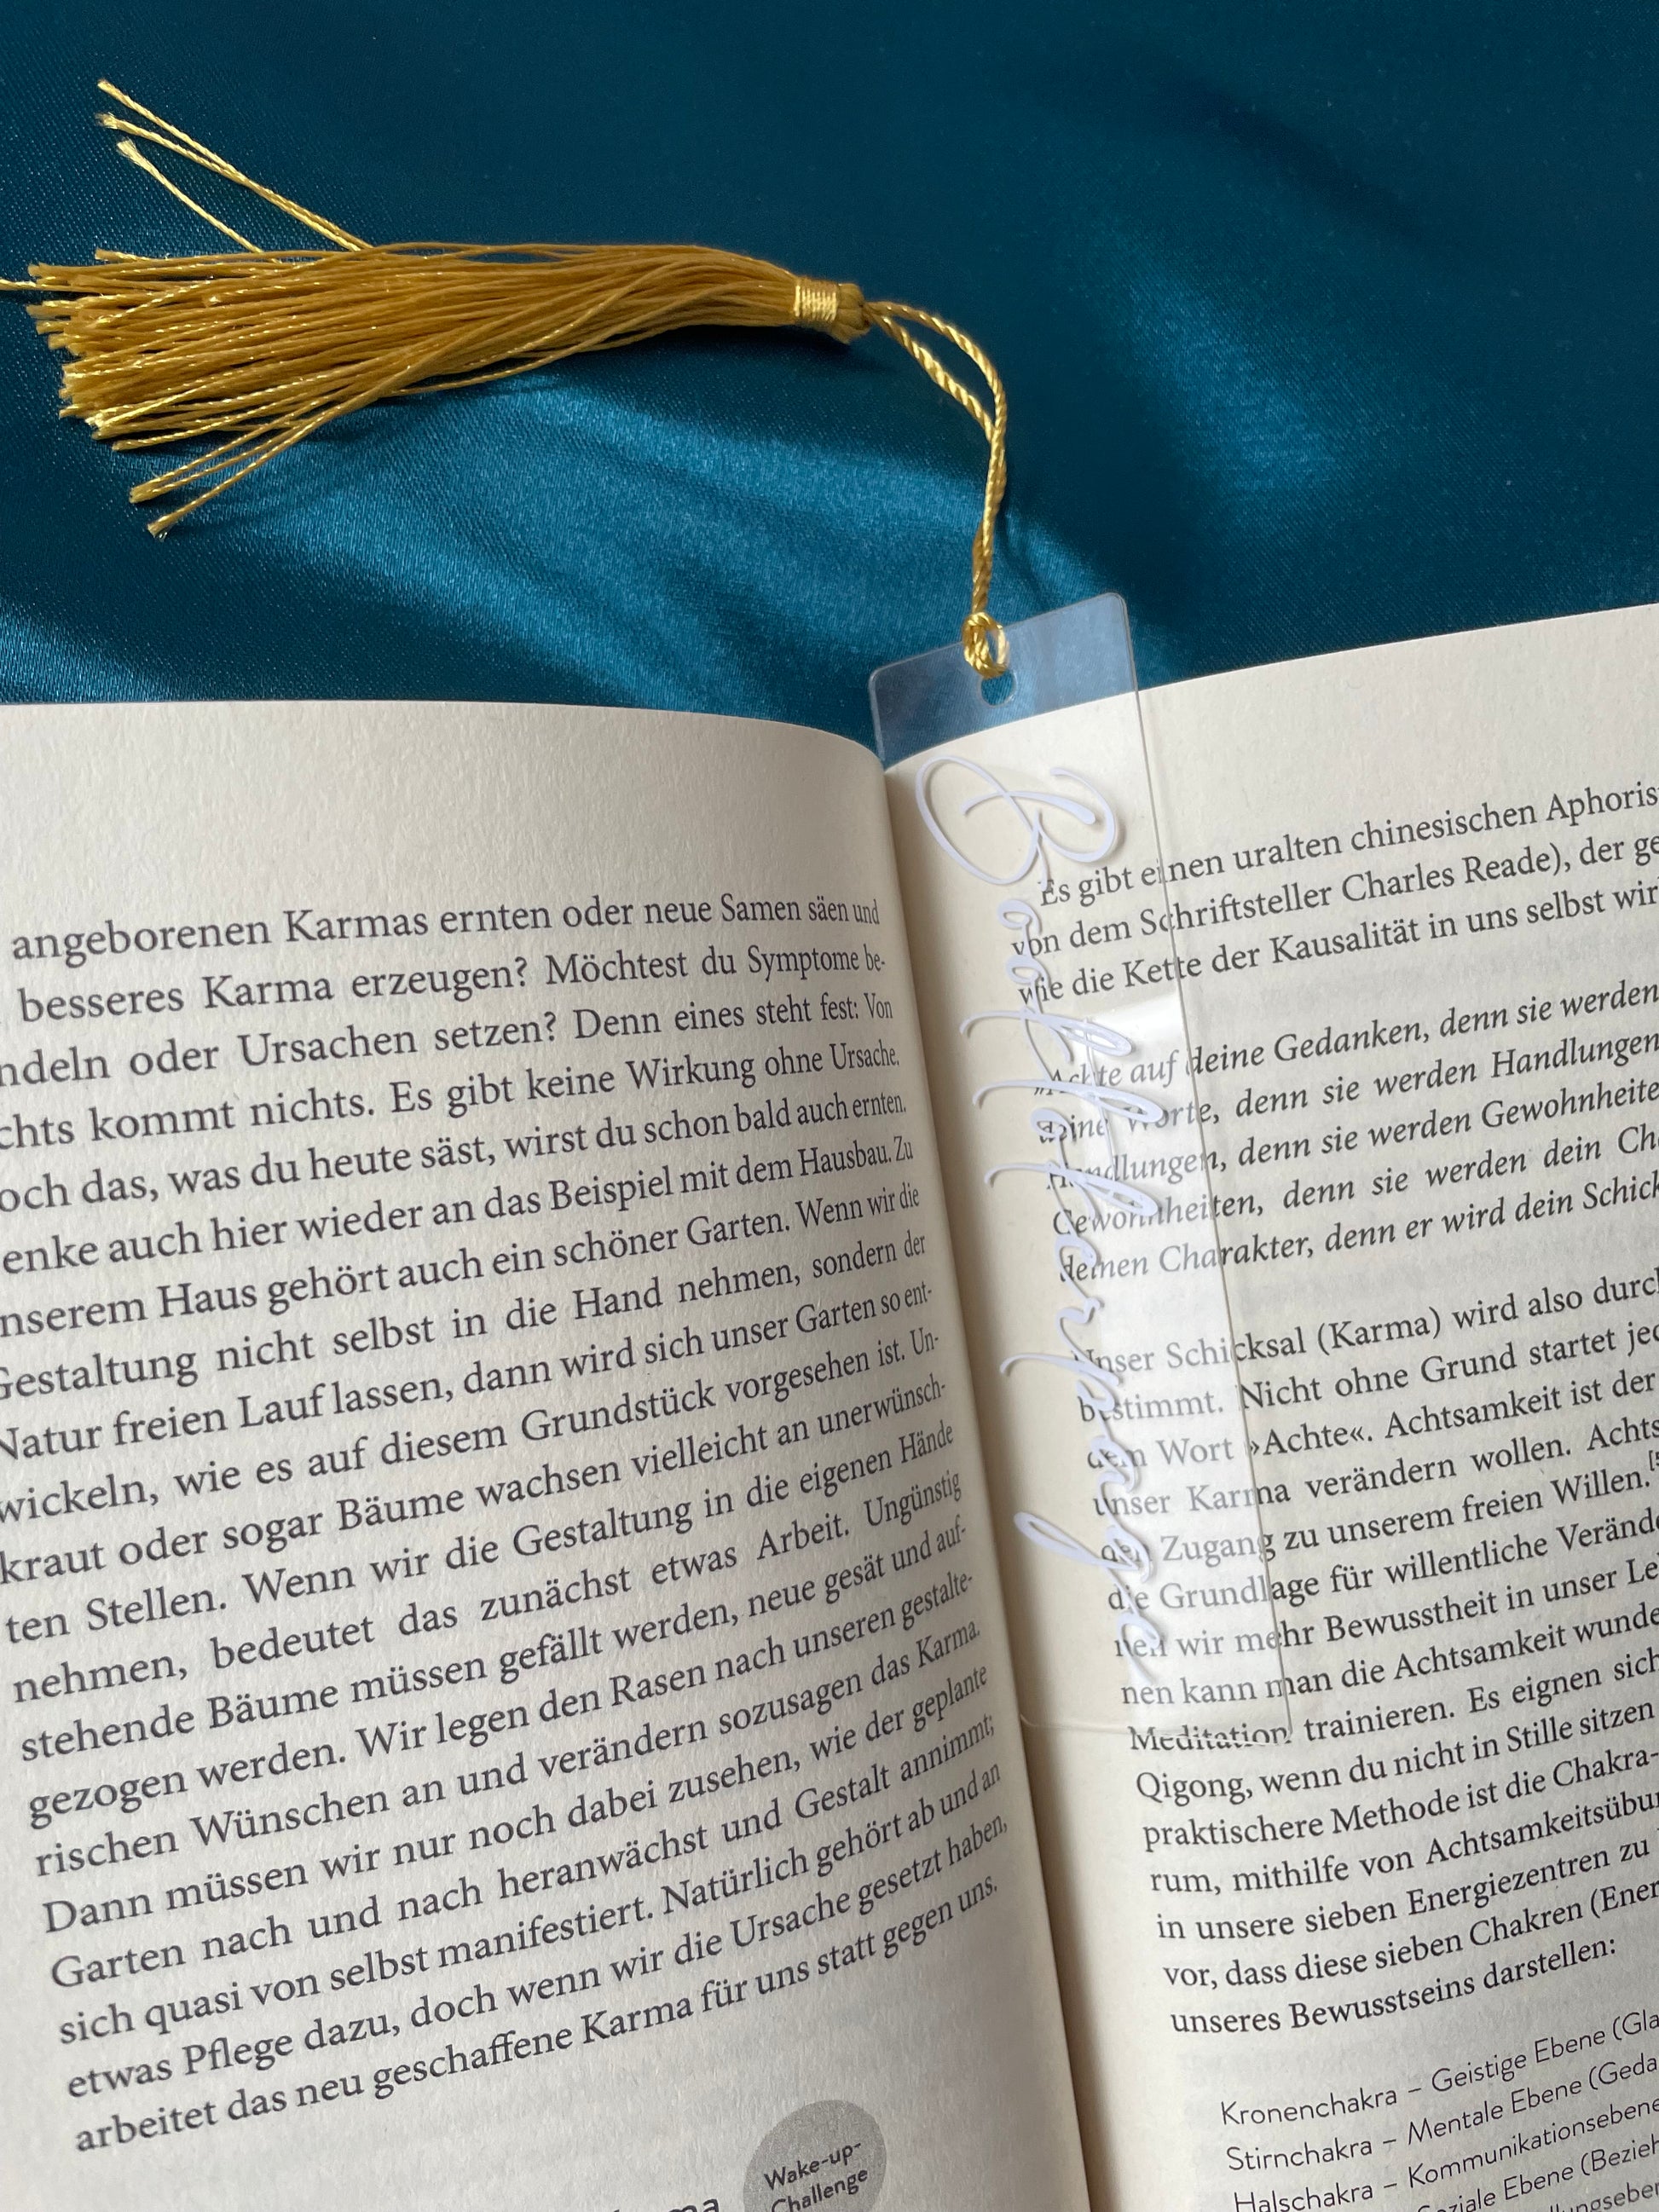 angeborenen Karmas ernten oder neue Samen säen und
besseres Karma erzeugen? Möchtest du Symptome be-
ndeln oder Ursachen setzen? Denn eines steht fest: Von
chts kommt nichts. Es gibt keine Wirkung ohne Ursache.
och das, was du heute säst, wirst du schon bald auch ernten.
enke auch hier wieder an das Beispiel mit dem Hausbau. Zu
nserem Haus gehört auch ein schöner Garten. Wenn wir die
Gestaltung nicht selbst in die Hand nehmen, sondern der
Natur freien Lauf lassen, dann wird sich unser Garten so ent-
wickeln, wie es auf diesem Grundstück vorgesehen ist. Un-
kraut oder sogar Bäume wachsen vielleicht an unerwünsch-
ten Stellen. Wenn wir die Gestaltung in die eigenen Hände
nehmen, bedeutet das zunächst etwas Arbeit. Ungünstig
stehende Bäume müssen gefällt werden, neue gesät und auf-
gezogen werden. Wir legen den Rasen nach unseren gestalte-
rischen Wünschen an und verändern sozusagen das Karma.
Dann müssen wir nur noch dabei zusehen, wie der geplante
Garten nach und nach heranwächst und Gestalt annimmt;
sich quasi von selbst manifestiert. Natürlich gehört ab und an
etwas Pflege dazu, doch wenn wir die Ursache gesetzt haben,
arbeitet das neu geschaffene Karma für uns statt gegen uns.
Wake-up-
Challenge
Es gibt einen uralten chinesischen Aphoris
von dem Schriftsteller Charles Reade), der ge
wie die Kette der Kausalität in uns selbst wir
»Achte auf deine Gedanken, denn sie werden
deine Worte, denn sie werden Handlungen
Handlungen, denn sie werden Gewohnheite
Gewohnheiten, denn sie werden dein Ch
deinen Charakter, denn er wird dein Schick
Unser Schicksal (Karma) wird also durch
bestimmt. Nicht ohne Grund startet jed
dem Wort »Achte«. Achtsamkeit ist der
unser Karma verändern wollen. Achts
den Zugang zu unserem freien Willen.
die Grundlage für willentliche Verände
nen wir mehr Bewusstheit in unser Le
nen kann man die Achtsamkeit wunde
Meditation trainieren. Es eignen sich
Qigong, wenn du nicht in Stille sitzen
praktischere Methode ist die Chakra-
rum, mithilfe von Achtsamkeitsübu
in unsere sieben Energiezentren zu
vor, dass diese sieben Chakren (Ener
unseres Bewusstseins darstellen:
Kronenchakra – Geistige Ebene (Gla
Stirnchakra – Mentale Ebene (Geda
Halschakra – Kommunikationsebene
Soziale Ebene (Bezieh